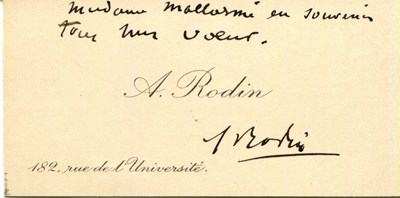 Madame Mallarmé en souvenir
tous mes voeux.
A. Rodin
A Rodin
182, rue de l'Université.